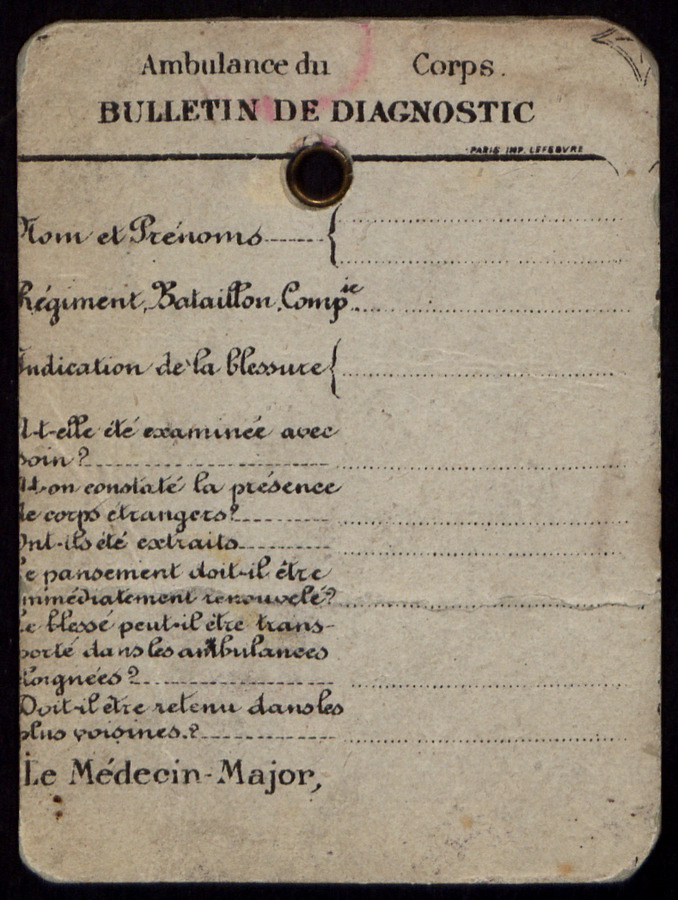 Ambulance du Corps.
BULLETIN DE DIAGNOSTIC
PARIS IMP. LEFEBVRE
Nom et Prénoms
Régiment, Bataillon, Comp^ie
Indication de la blessure
A-t-elle été examinée avec
soin ?
A-t-on constaté la présence
de corps étrangers ?
Ont-ils été extraits
Le pansement doit-il être
immédiatement renouvelé ?
Le blessé peut-il être trans-
porté dans les ambulances
éloignées ?
Doit-il être retenu dans les
plus voisines. ?
Le Médecin-Major,